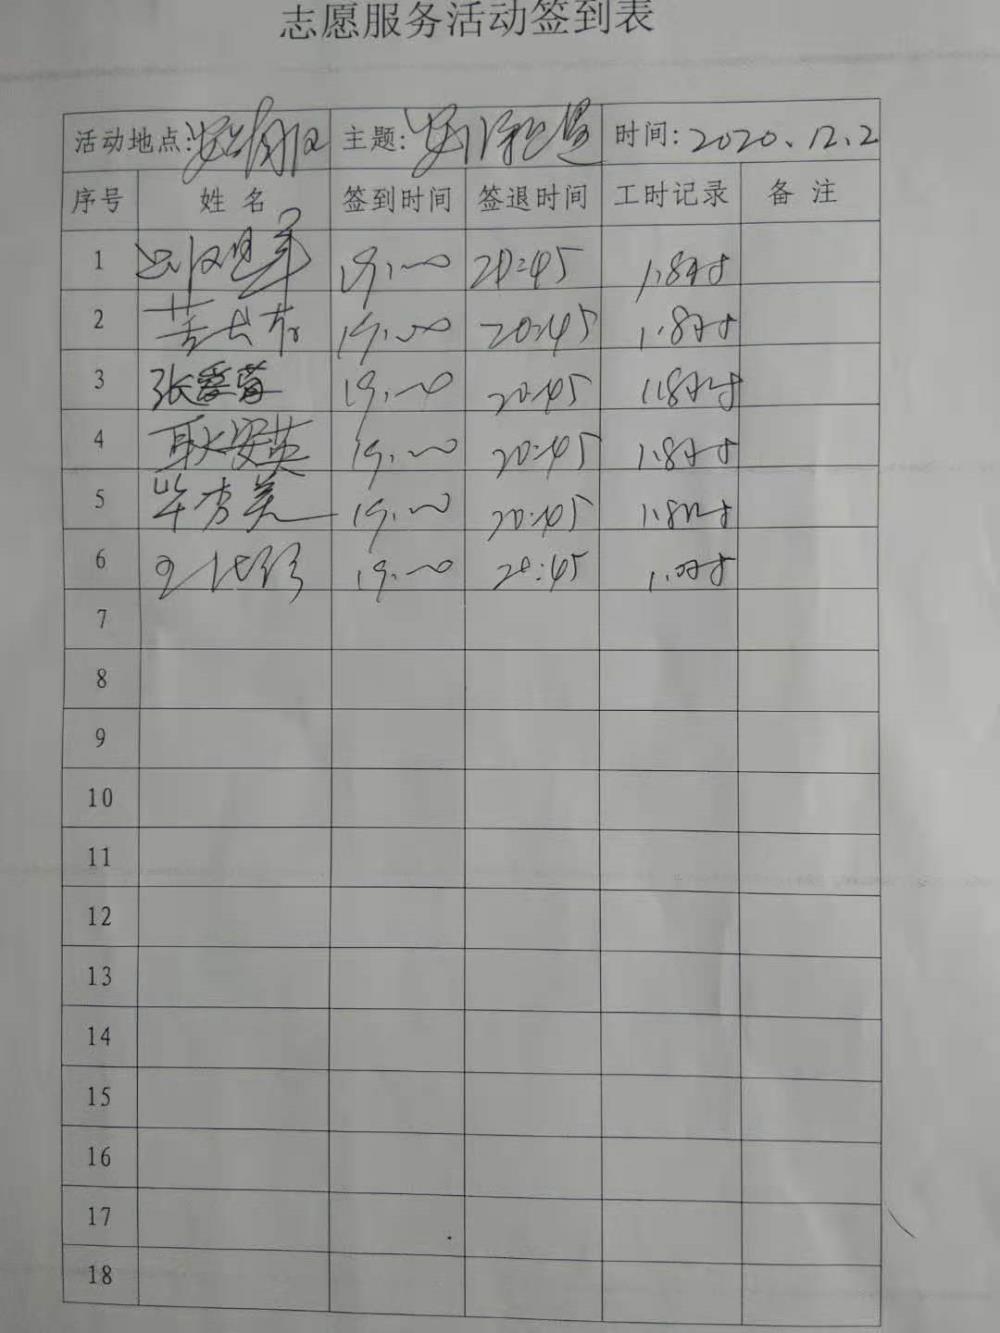 志愿服务活动签到表
活动地点: 主题: 时间: 2020.12.2
序号 姓名 签到时间 签退时间 工时记录 备注
1 19:00 20:45 1.8时
2 19:00 20:45 1.8时
3 张爱苗 19:00 20:45 1.8时
4 耿安英 19:00 20:45 1.8时
5 毕秀美 19:00 20:45 1.8时
6 19:00 20:45
7
8
9
10
11
12
13
14
15
16
17
18